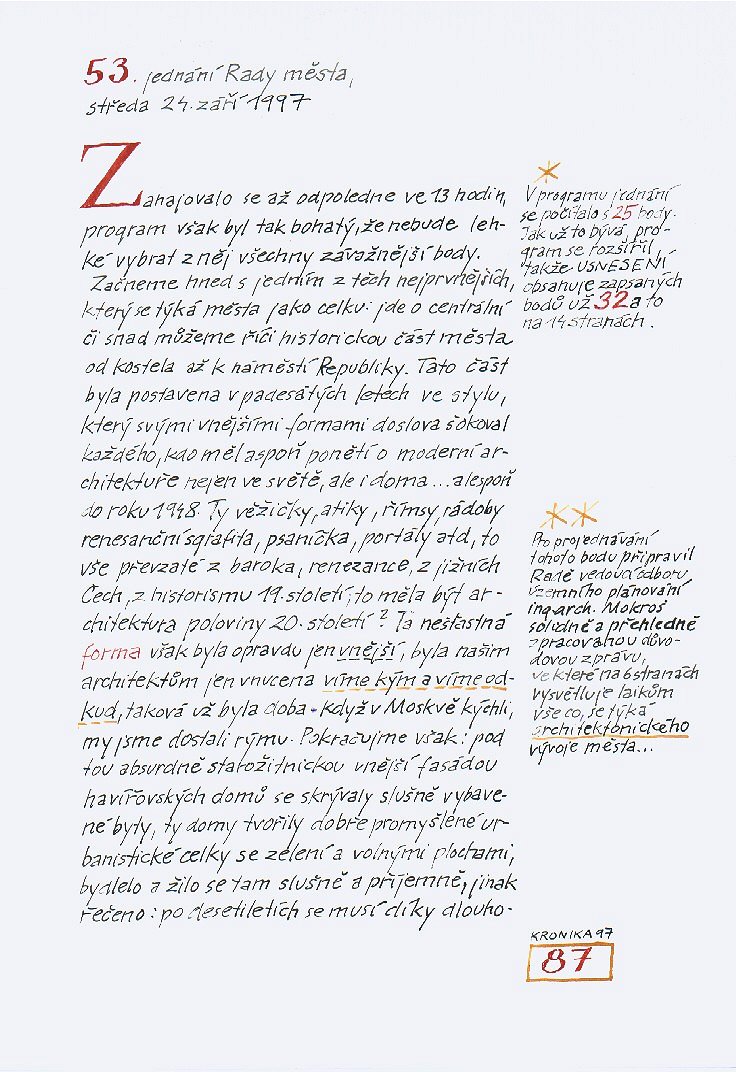 53. jednání Rady města,
středa 24. září 1997
Zahajovalo se až odpoledne ve 13 hodin,
program však byl tak bohatý, že nebude leh-
ké vybrat z něj všechny závažnější body.
Začneme hned s jedním z těch nejprvnějších,
který se týká města jako celku: jde o centrální
či snad můžeme říci historickou část města
od kostela až k náměstí Republiky. Tato část
byla postavena v padesátých letech ve stylu,
který svými vnějšími formami doslova šokoval
každého, kdo měl aspoň ponětí o moderní ar-
chitektuře nejen ve světě, ale i doma... alespoň
do roku 1948. Ty věžičky, atiky, římsy, rádoby
renesanční sgrafita, psaníčka, portály atd, to
vše převzaté z baroka, renezance, z jižních
Čech, z historismu 19. století, to měla být ar-
chitektura poloviny 20. století? Ta nešťastná
forma však byla opravdu jen vnější, byla našim
architektům jen vnucena víme kým a víme od-
kud, taková už byla doba - když v Moskvě kýchli,
my jsme dostali rýmu. Pokračujme však: pod
tou absurdně starožitnickou vnější fasádou
havířovských domů se skrývaly slušně vybave-
né byty, ty domy tvořily dobře promyšlené ur-
banistické celky se zelení a volnými plochami,
bydlelo a žilo se tam slušně a příjemně, jinak
řečeno: po desetiletích se musí díky dlouho-
*
V programu jednání
se počítalo s 25 body.
Jak už to bývá, pro-
gram se rozšířil,
takže USNESENÍ
obsahuje zapsaných
bodů už 32 a to
na 14 stranách.
**
Pro projednávání
tohoto bodu připravil
Radě vedoucí odboru
územního plánování
ing. arch. Mokroš
solidně a přehledně
zpracovanou důvo-
dovou zprávu,
ve které na 6 stranách
vysvětluje laikům
vše co, se týká
architektonického
vývoje města...
KRONIKA 97
87